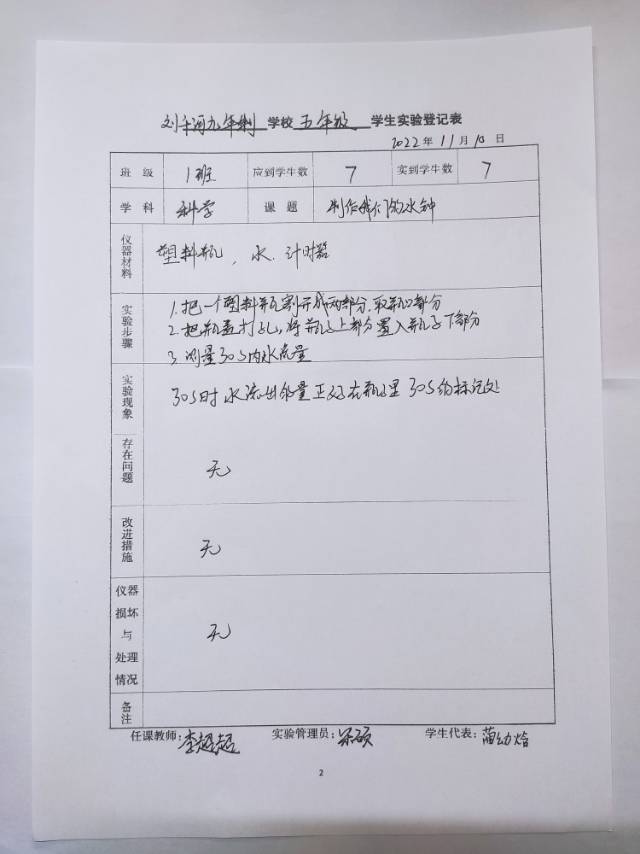 刘千河九年制 学校 五年级 学生实验登记表
2022 年 11 月 10 日
班 级 1班 应到学生数 7 实到学生数 7
学 科 科学 课 题 制作我们的水钟
仪器材料 塑料瓶，水．计时器
实验步骤 1.把一个塑料瓶割开成两部分．取瓶口部分
2.把瓶盖打孔，将瓶子上部分置入瓶子下部分
3.测量30S内水流量
实验现象 30S时水流出的量正好在瓶子里30S的标记处
存在问题 无
改进措施 无
仪器损坏与处理情况 无
备注
任课教师：李超超 实验管理员： 学生代表：蒲幼
2